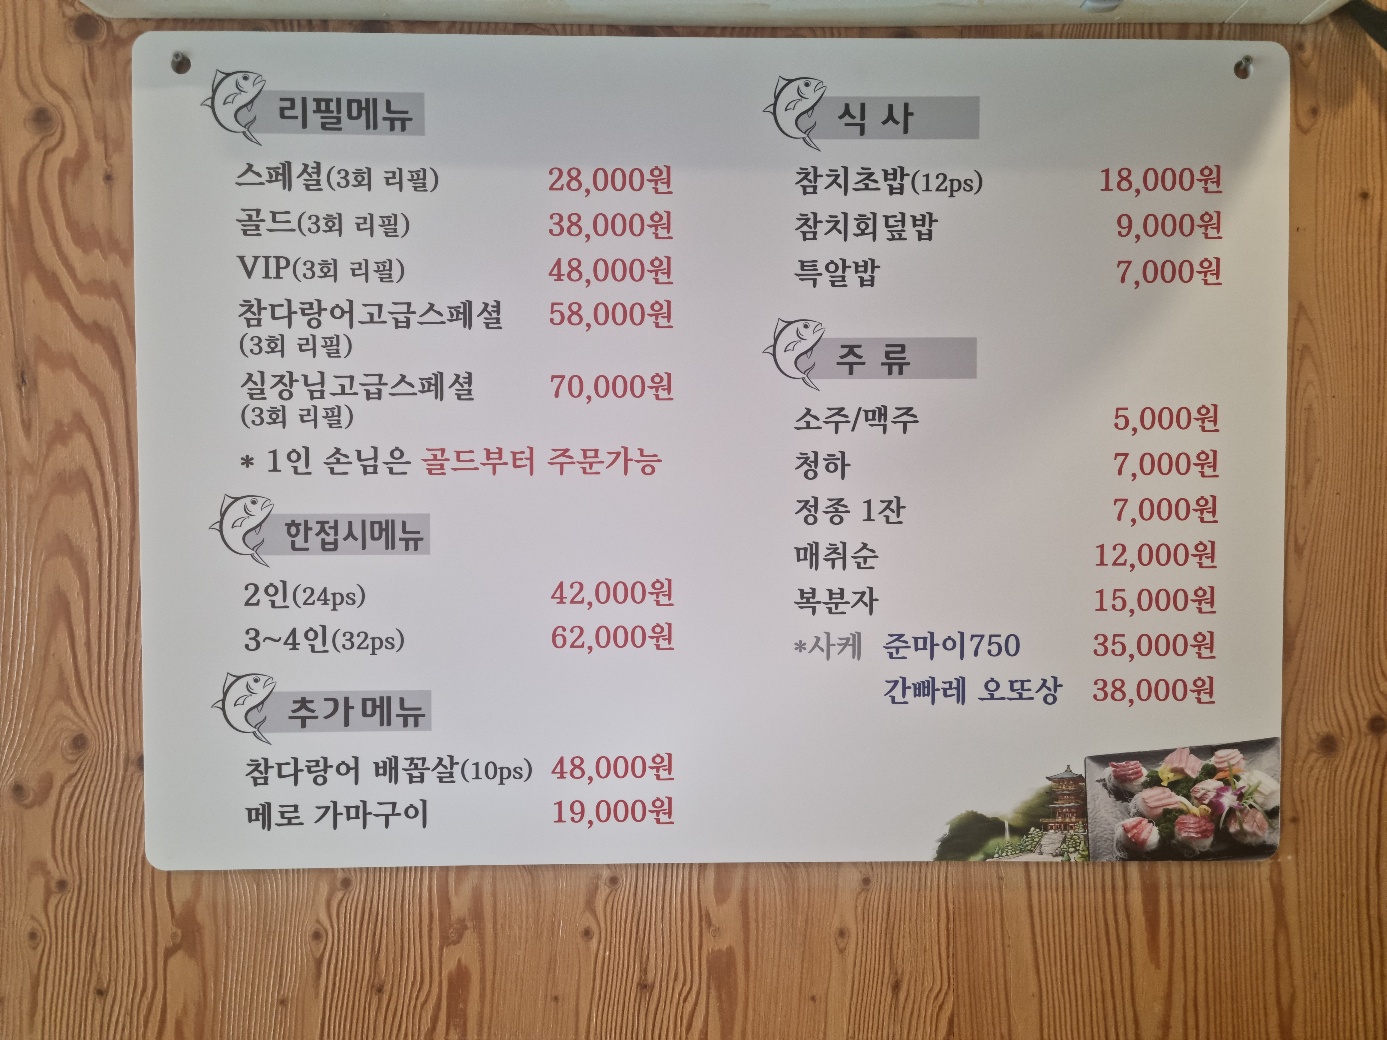 리필메뉴
스페셜(3회 리필) 28,000원
골드(3회 리필) 38,000원
VIP(3회 리필) 48,000원
참다랑어고급스페셜 58,000원
(3회 리필)
실장님고급스페셜 70,000원
(3회 리필)
* 1인 손님은 골드부터 주문가능
한접시메뉴
2인(24ps) 42,000원
3~4인(32ps) 62,000원
추가메뉴
참다랑어 배꼽살(10ps) 48,000원
메로 가마구이 19,000원
식 사
참치초밥(12ps) 18,000원
참치회덮밥 9,000원
특알밥 7,000원
주 류
소주/맥주 5,000원
청하 7,000원
정종 1잔 7,000원
매취순 12,000원
복분자 15,000원
*사케 준마이750 35,000원
간빠레 오또상 38,000원